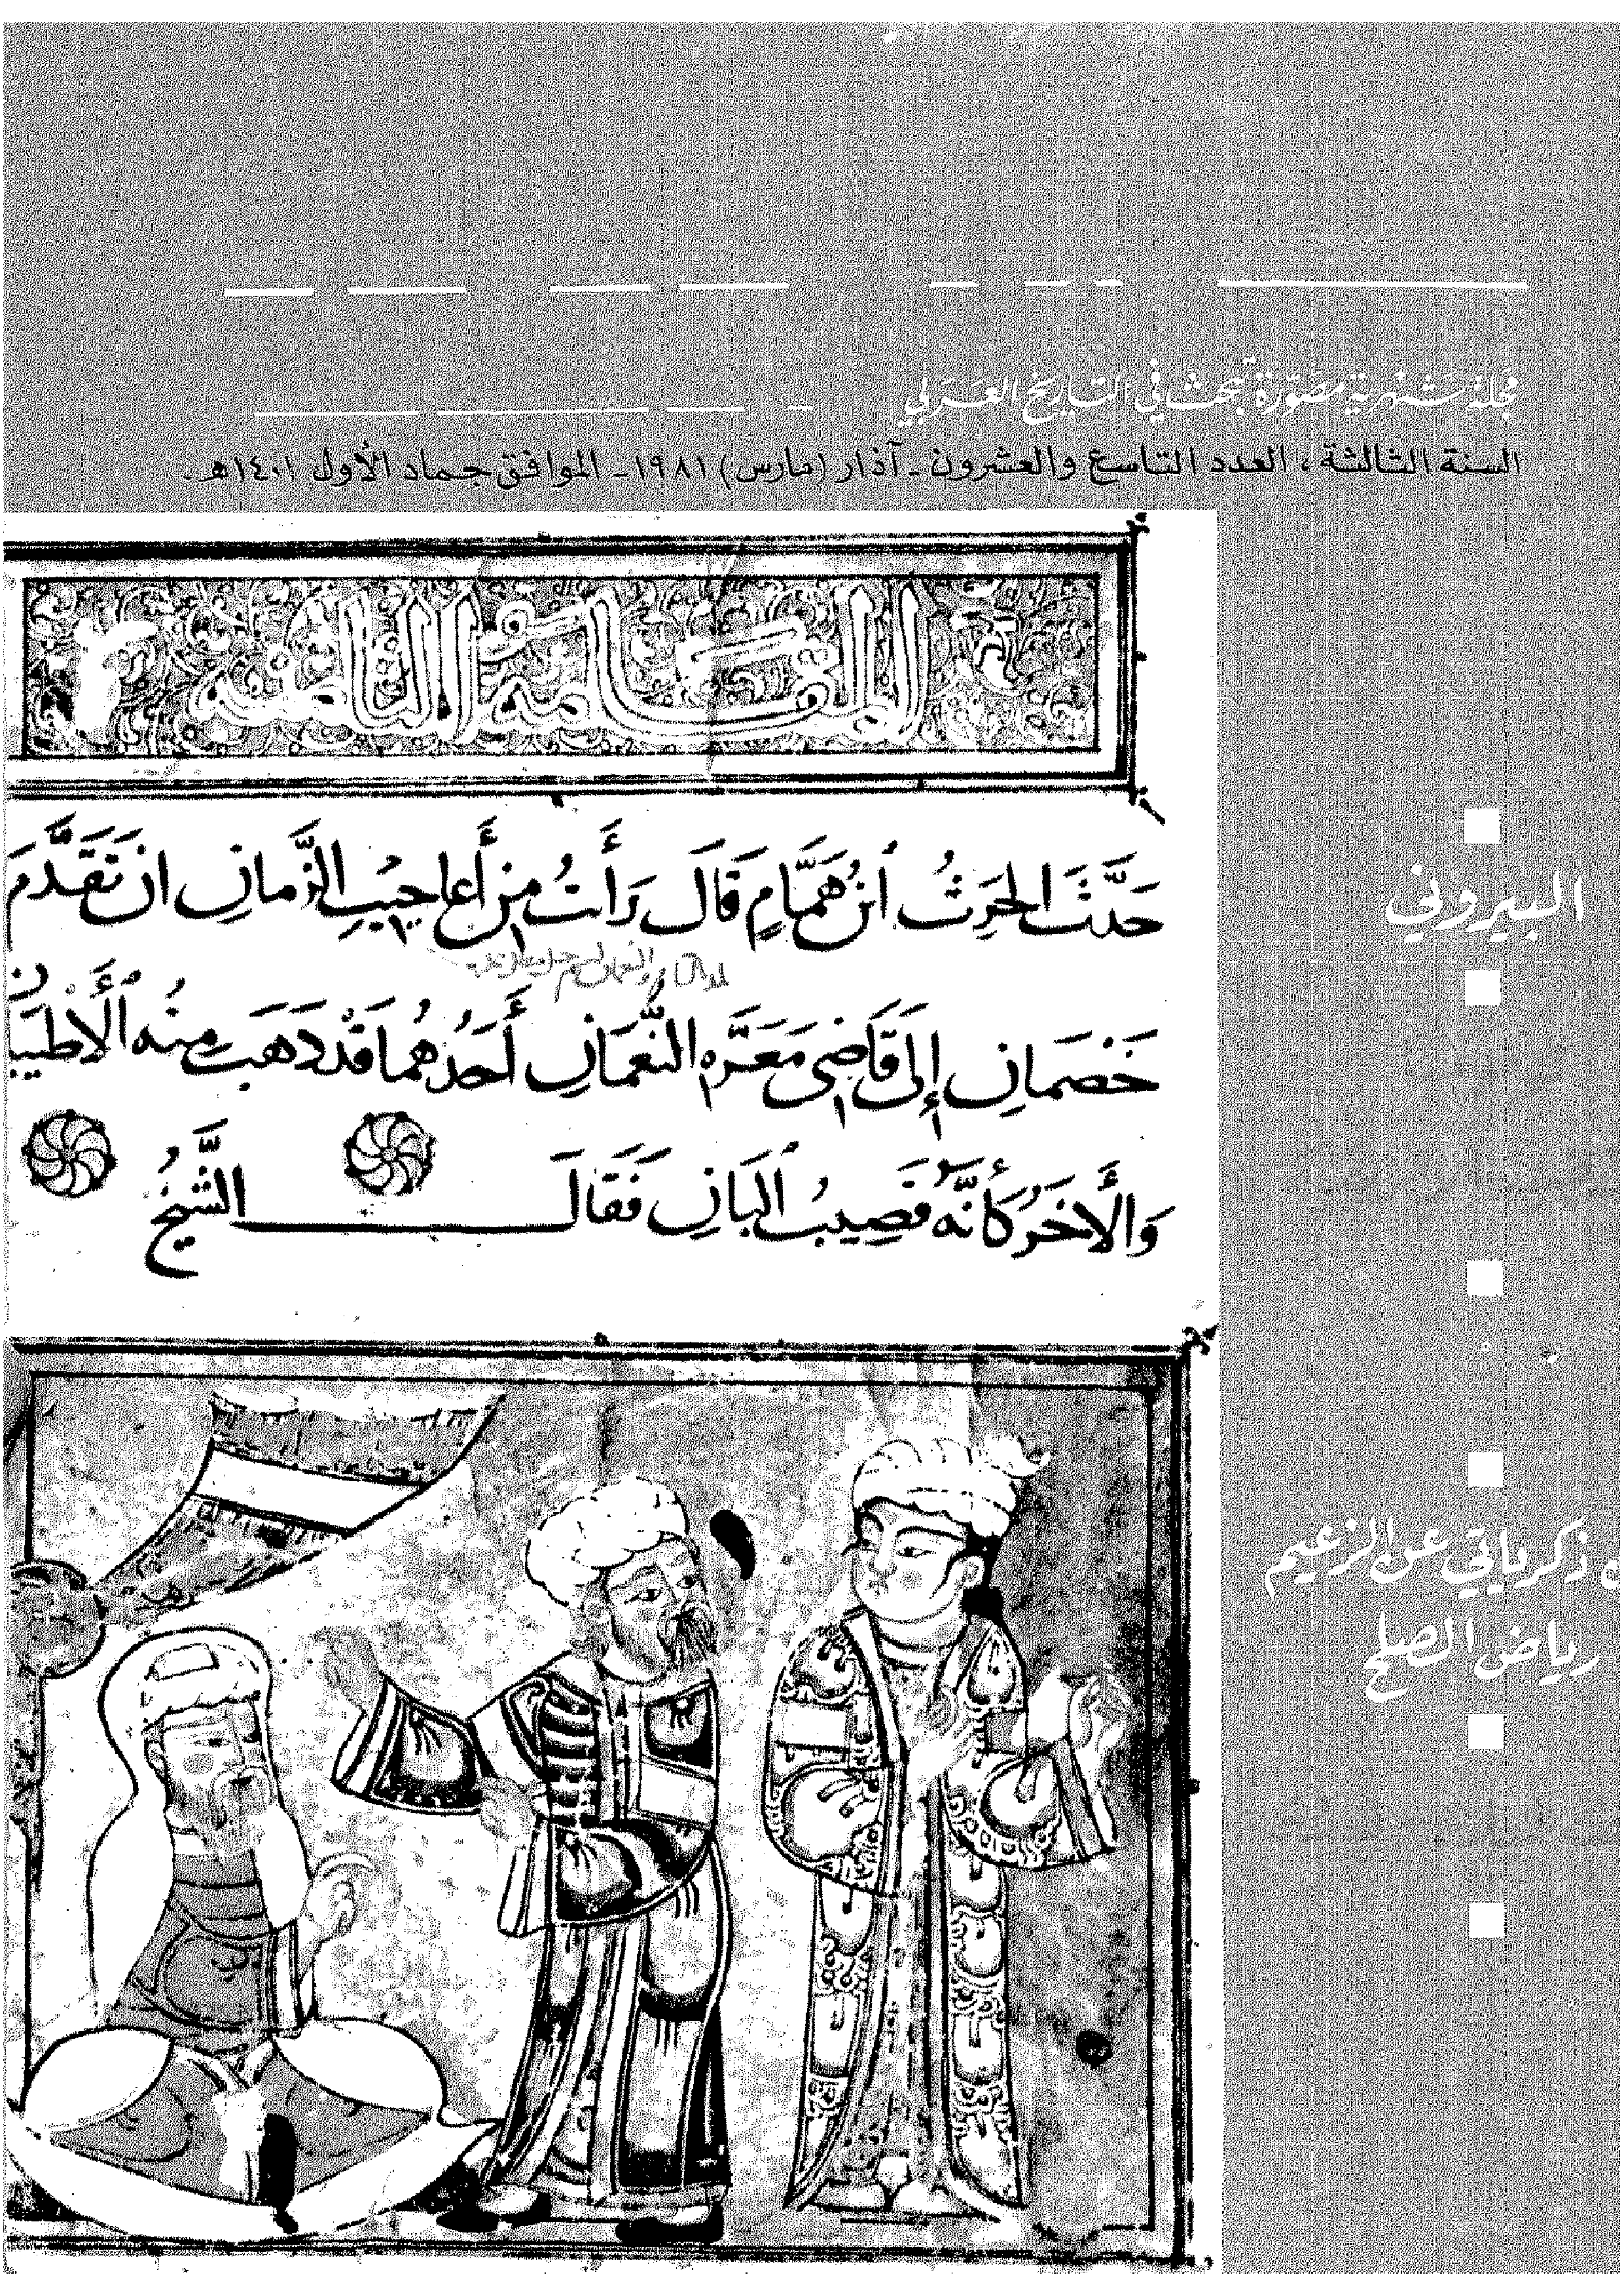 مجلة شهرية مصوّرة تبحث في التاريخ العربي
السنة الثالثة، العدد التاسع والعشرون - آذار (مارس) ١٩٨١ - الموافق جماد الأول ١٤٠١هـ.
المقامة الثامنة
حَدَّثَ الحَرِثُ ابْنُ هَمَّامٍ قَالَ رَأَيْتُ مِنْ أَعَاجِيبِ الزَّمانِ ان تَقَدَّمَ
خَصْمَانِ إِلَى قَاضِي مَعَرَّه النُّعْمَانِ أَحَدُهُمَا قَدْ ذَهَبَ مِنْهُ الْأَطْيَبَانِ
وَالْأَخَرُ كَأَنَّه قَضِيبُ الْبَانِ فَقَالَ الشَّيْخُ
البيروني
ذكرياتي عن الزعيم
رياض الصلح